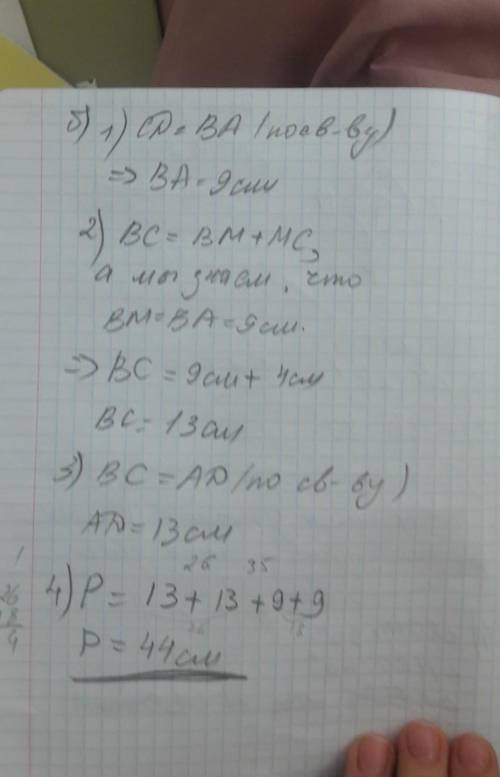 б) 1) CD = BA (по св-ву)
=> BA = 9 см
2) BC = BM + MC,
а мы знаем, что
BM = BA = 9 см.
=> BC = 9 см + 4 см
BC = 13 см
3) BC = AD (по св-ву)
AD = 13 см
26 35
4) P = 13 + 13 + 9 + 9
P = 44 см
1
26
18
4